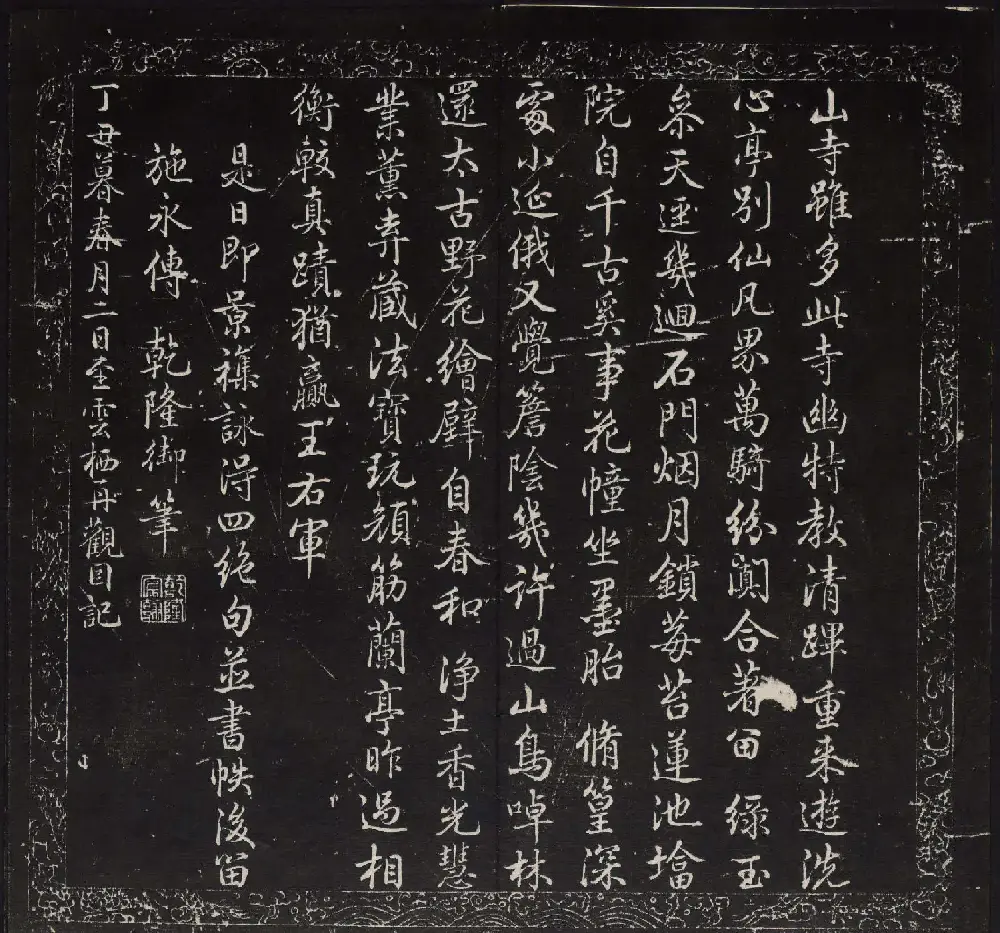 山寺雖多此寺幽特教清蹕重來遊洗
心亭別仙凡界萬騎紛闐合著留 緑玉
參天逕幾迴石門烟月鎖莓苔蓮池墖
院自千古奚事花幢坐墨胎 脩篁深
處小延俄又覺簷陰幾許過山鳥啅林
還太古野花繪壁自春和 浄土香光慧
業薰弆藏法寶玩顔筋蘭亭昨過相
衡較真蹟猶贏王右軍
是日即景襍詠得四絶句並書帙後留
施永傳 乾隆御筆
乾隆宸翰
丁丑暮春月二日至雲栖再觀因記